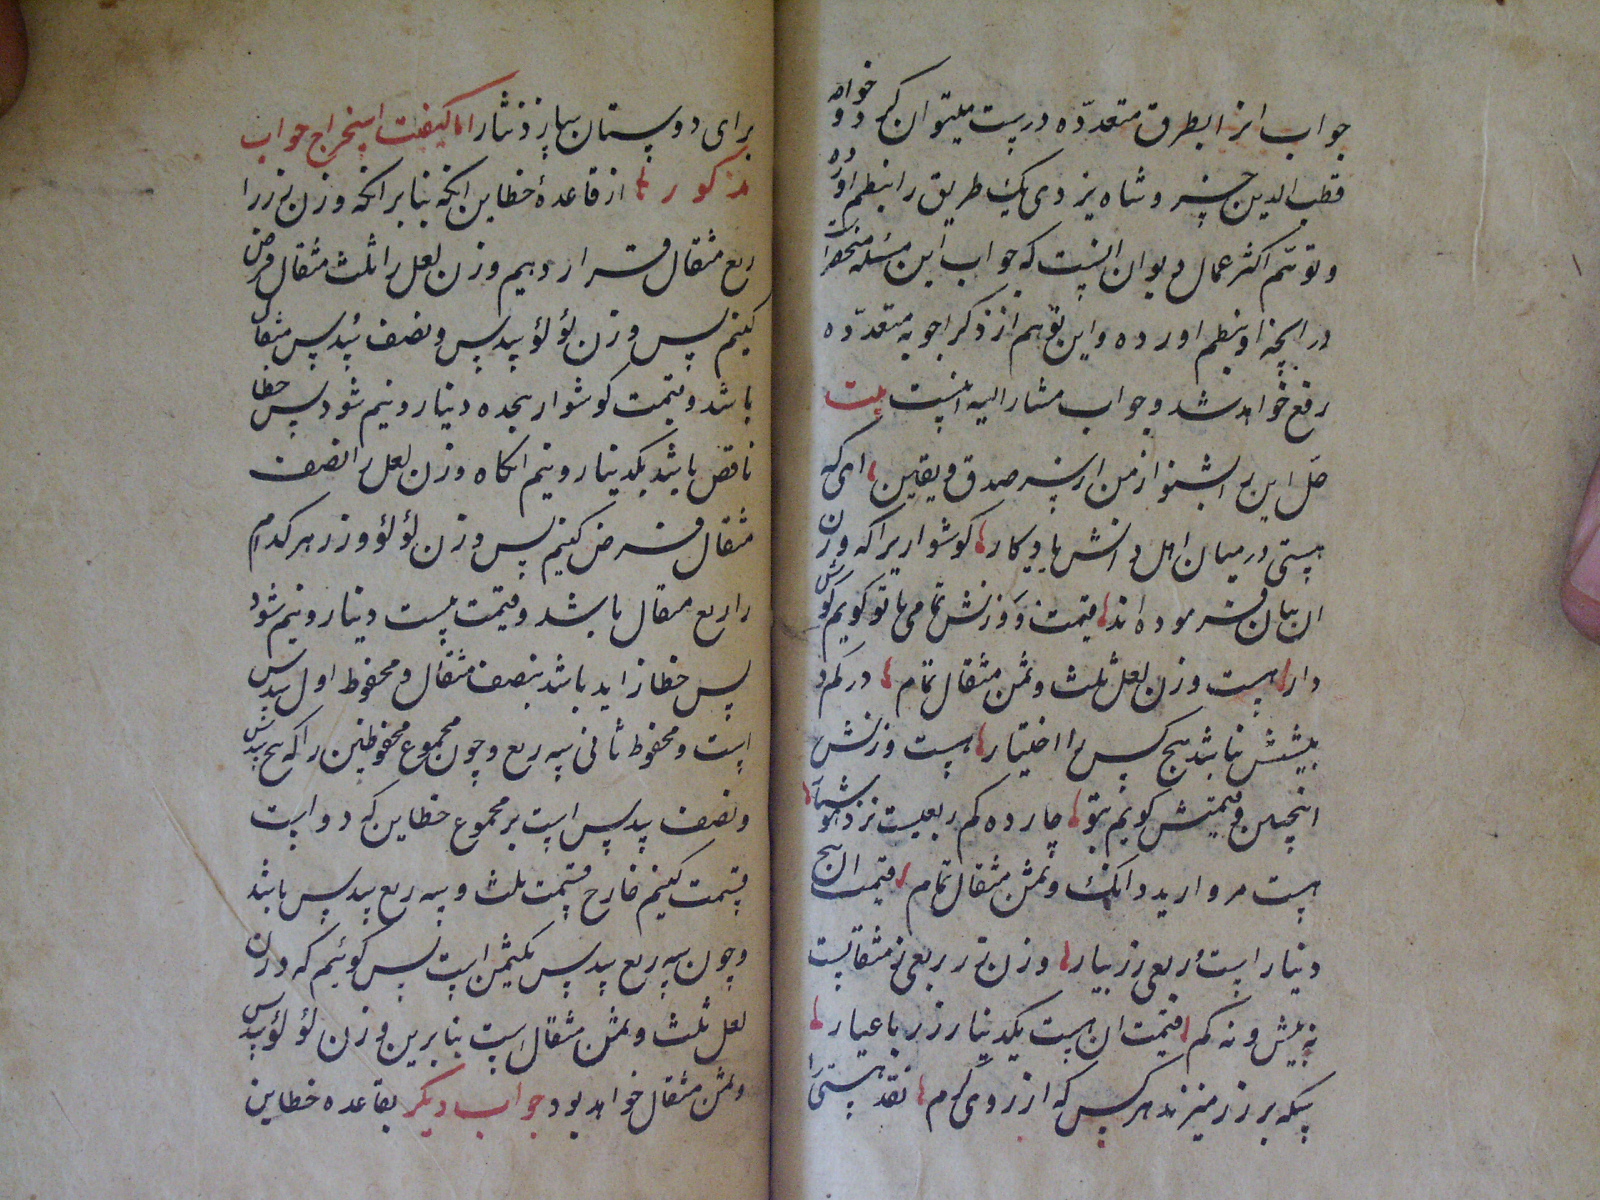 جواب انرا بطرق متعدّده درست میتوان کرد و خواجه
قطب الدین خسرو شاه یزدی یک طریق را بنظم اورده
و توهّم اکثر عمال دیوان انست که جواب این مسئله منحصرا
در انچه او بنظم اورده و این توهم از ذکر اجوبه متعدّده
رفع خواهد شد و جواب مشار الیه اینست بیت
حل این را بشنو از من از سر صدق و یقین ای که
هستی در میان اهل دانش یادکار کوشواریرا که وزن
ان بیان فرموده اند قیمت و وزنش تمامی با تو کویم کوش
دار هست وزن لعل ثلث و ثمن مثقال تمام در کم و
بیشش نباشد هیچ کس را اختیار هست وزنش
اینچنین و قیمتش کویم بتو چارده کم ربعیست نزد هوشیار
هست مروارید دانک و ثمن مثقال تمام قیمت ان پنج
دینار است و ربعی زر بیار وزن زر ربعی ز مثقالست
نه بیش و نه کم قیمت ان هست یکدینار زر با عیار
سکه بر زر میزند هر کس که از روی کرم نقد هستی را
برای دوستان سازد نثار اما کیفیت استخراج جواب
مذکور از قاعدهٔ خطاین انکه بنا بر انکه وزن زر را
ربع مثقال قرار دهیم وزن لعل را ثلث مثقال فرض
کنیم پس وزن لؤلؤ سدس و نصف سدس مثقال
باشد و قیمت کوشوار هجده دینار و نیم شود پس خطا
ناقص باشد بیکدینار و نیم انکاه وزن لعل را نصف
مثقال فرض کنیم پس وزن لؤلؤ و زر هر کدام
را ربع مثقال باشد و قیمت بیست دینار و نیم شود
پس خطا زاید باشد بنصف مثقال و محفوظ اول سدس
است و محفوظ ثانی سه ربع و چون مجموع محفوظین را که پنج سدس
و نصف سدس است بر مجموع خطاین که دو است
قسمت کنیم خارج قسمت ثلث و سه ربع سدس باشد
و چون سه ربع سدس یکثمن است پس کوئیم که وزن
لعل ثلث و ثمن مثقال است بنابرین وزن لؤلؤ سدس
و ثمن مثقال خواهد بود جواب دیکر بقاعده خطاین